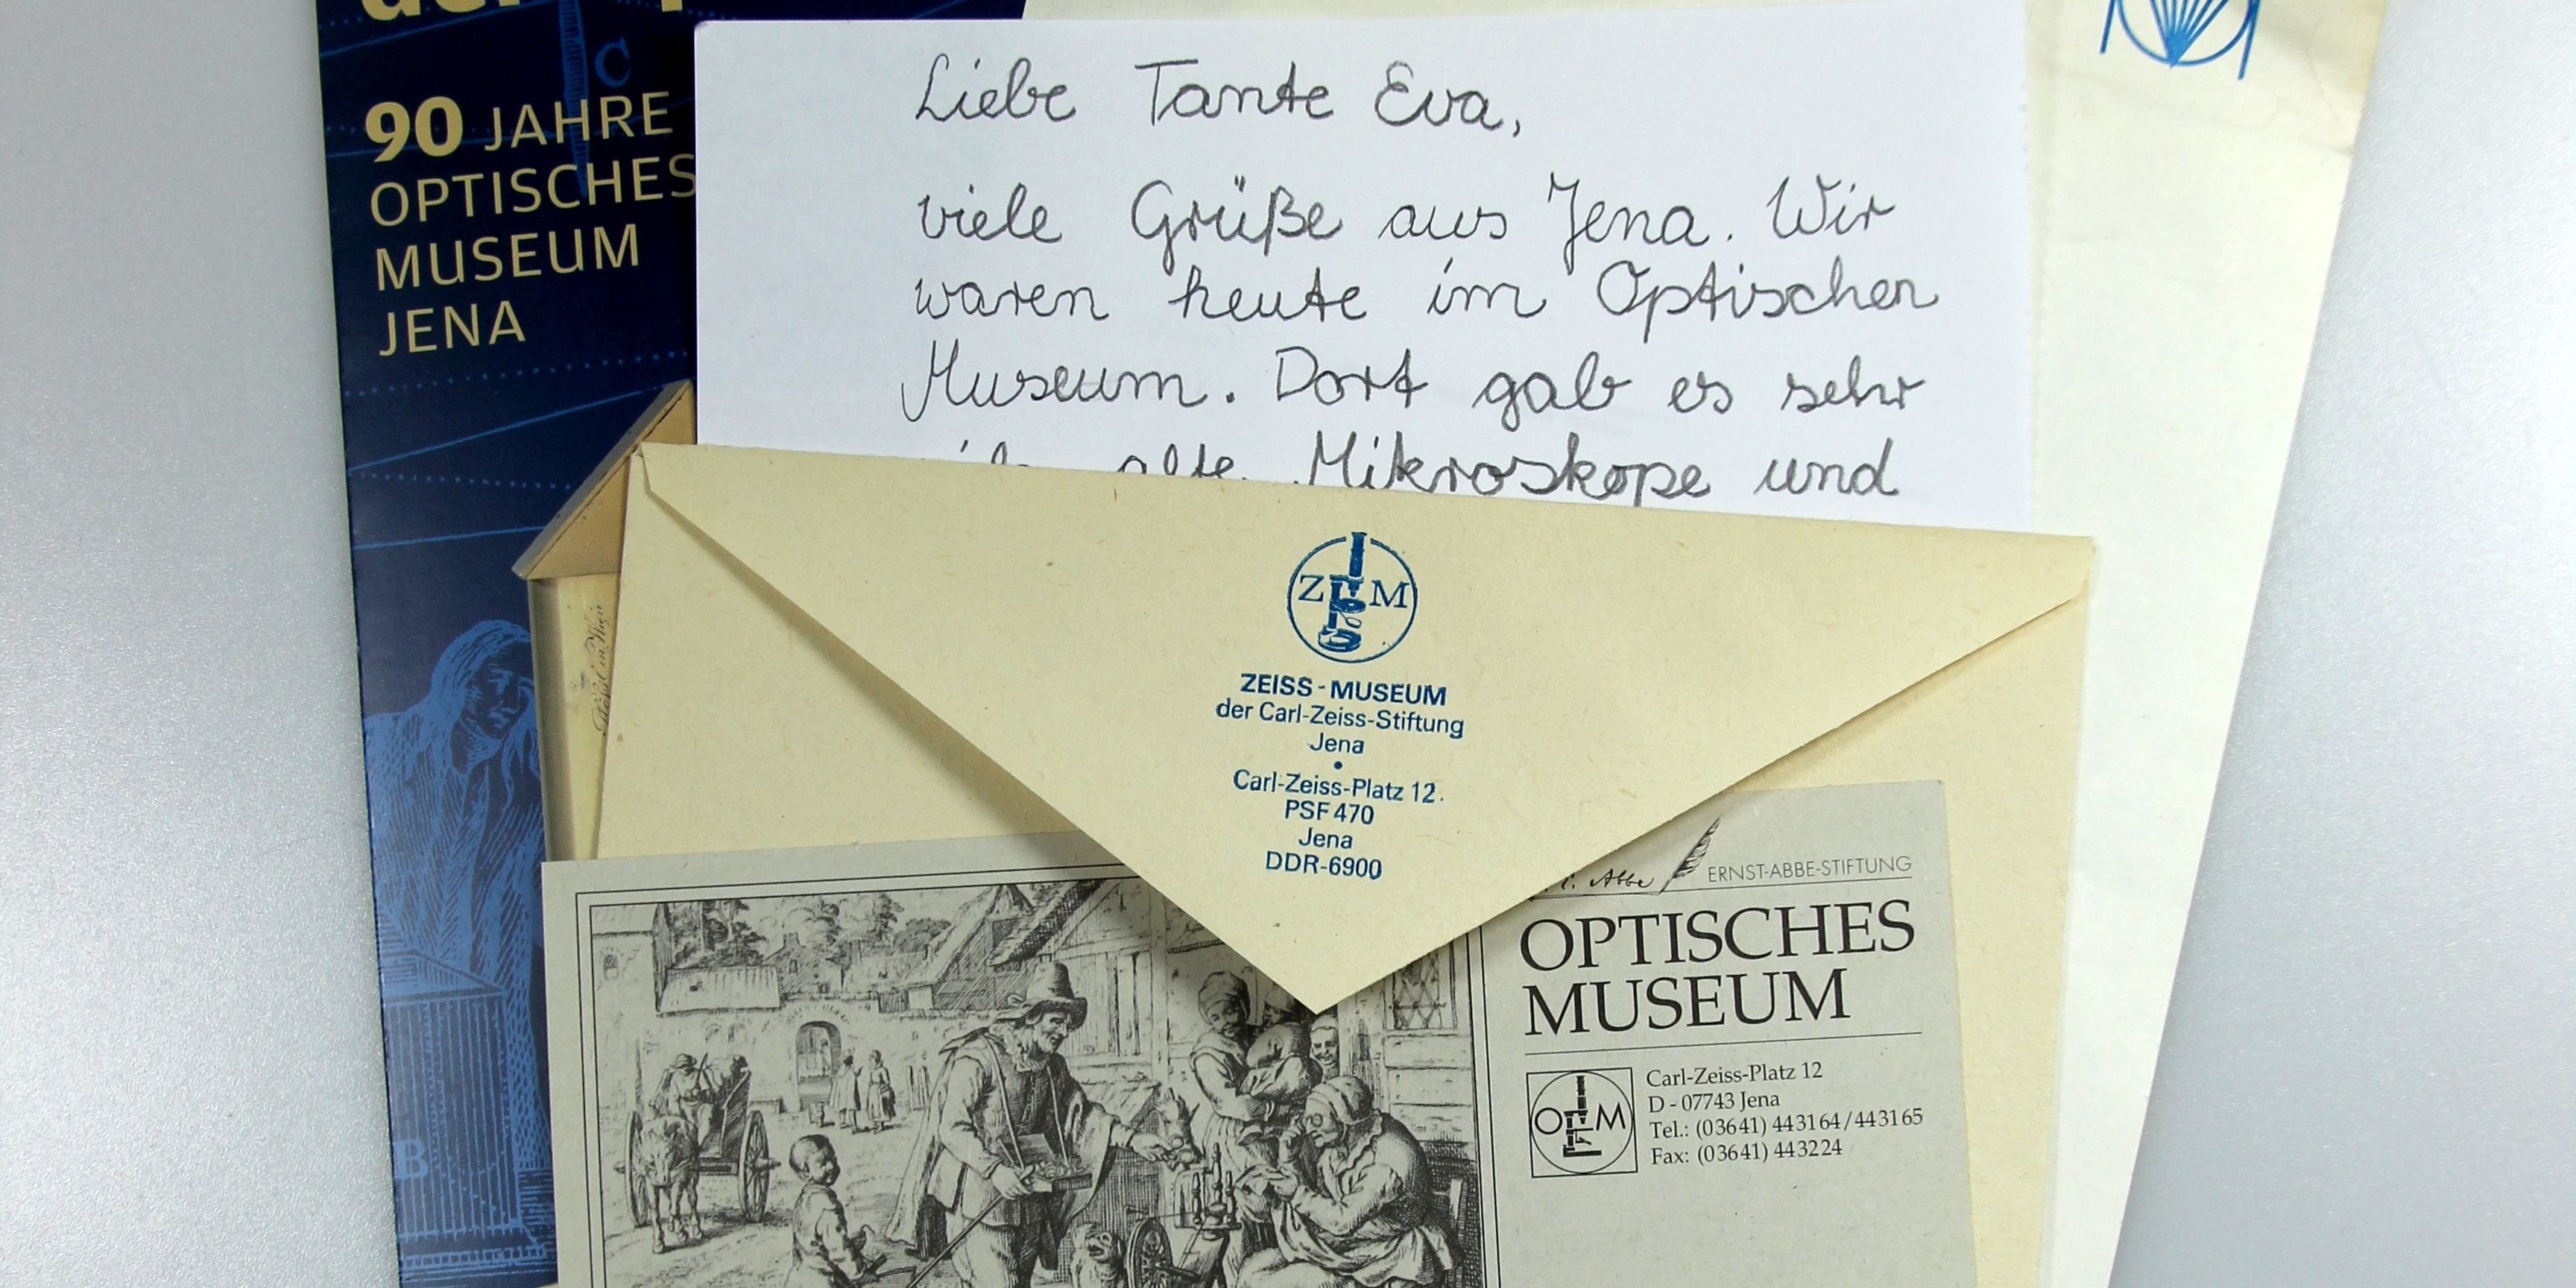 90 JAHRE
OPTISCHES
MUSEUM
JENA
C
B
Liebe Tante Eva,
viele Grüße aus Jena. Wir
waren heute im Optischen
Museum. Dort gab es sehr
alte Mikroskope und
Z M
ZEISS-MUSEUM
der Carl-Zeiss-Stiftung
Jena
•
Carl-Zeiss-Platz 12.
PSF 470
Jena
DDR-6900
Abbe
ERNST-ABBE-STIFTUNG
OPTISCHES
MUSEUM
O M
Carl-Zeiss-Platz 12
D - 07743 Jena
Tel.: (03641) 443164/443165
Fax: (03641) 443224